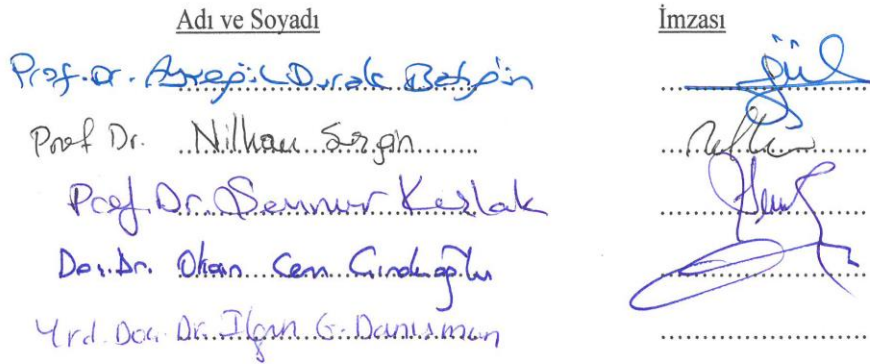 Adı ve Soyadı İmzası
Prof. Dr. Ayşegül Durak Batıgün gül
Prof Dr. Nilhan Sezgin
Prof. Dr. Sennur Kışlak
Doç. Dr. Okan Cem Çırakoğlu
Yrd. Doç. Dr. Ilgın G. Danışman